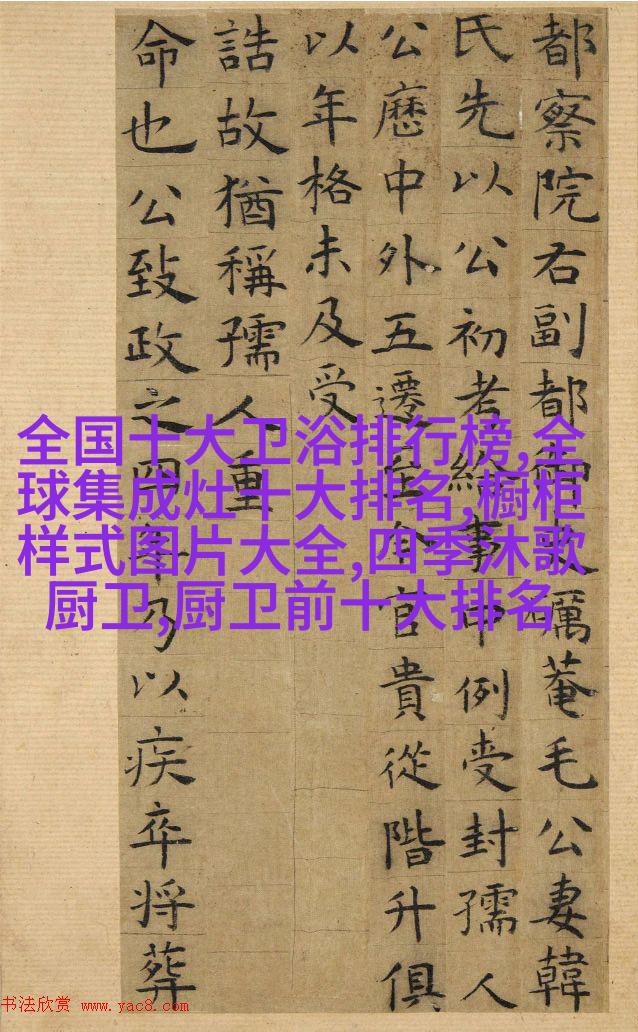 都察院右副都御史礪菴毛公妻韓
氏先以公初考給事中例受封孺人
公歷中外五遷至今官貴從階升俱
以年格未及受
誥故猶稱孺人重
命也公致政之四年乃以疾卒將葬
全国十大卫浴排行榜,全
球集成灶十大排名,橱柜
样式图片大全,四季沐歌
厨卫,厨卫前十大排名
书法欣赏 www.yac8.com